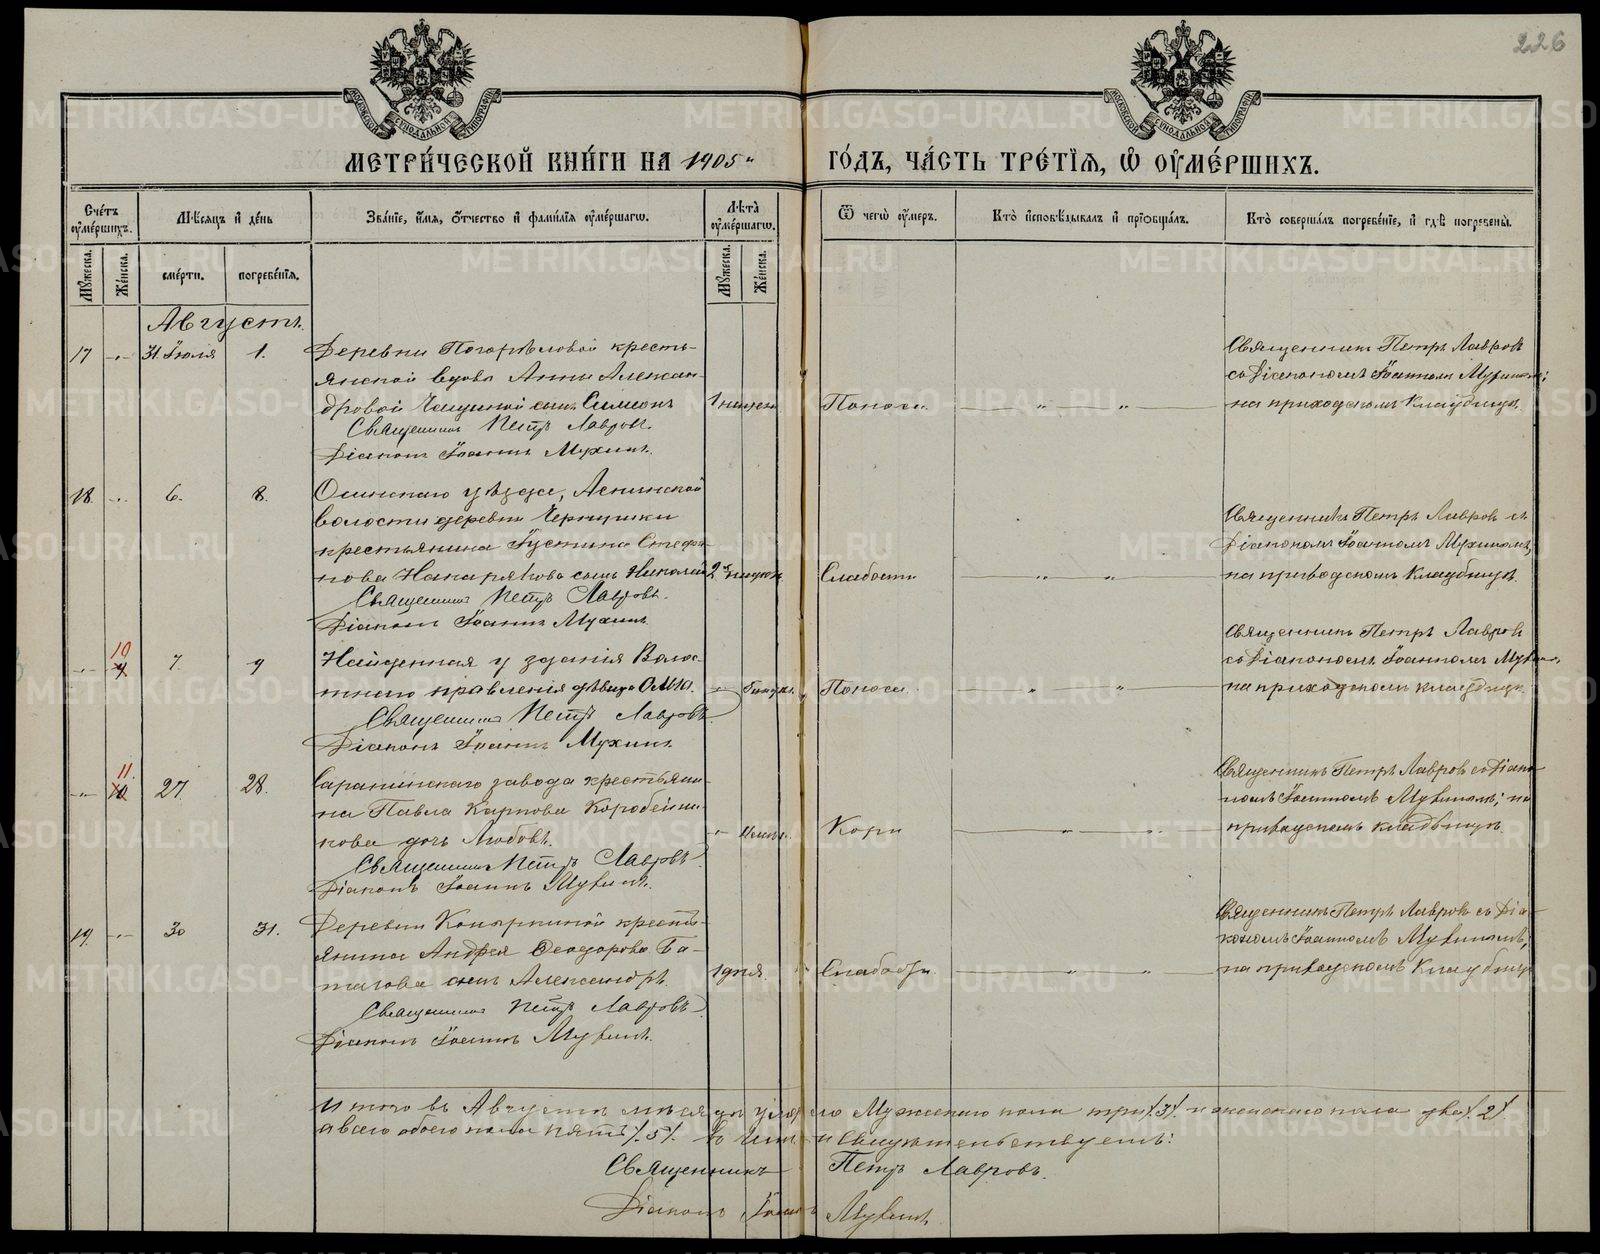 226
МОСКОВСКОЙ СѴНОДАЛЬНОЙ ТИПОГРАФІИ
МОСКОВСКОЙ СѴНОДАЛЬНОЙ ТИПОГРАФІИ
МЕТРИ́ЧЕСКОЙ КНИ́ГИ НА 1905 ГО́ДЪ, ЧА́СТЬ ТРЕ́ТІѦ, Ѡ҆ ОУ҆МЕ́РШИХЪ.
Сче́тъ оу҆ме́ршихъ.
Мꙋ́жеска.
Же́нска.
Мѣ́сяцъ и҆ де́нь
сме́рти.
погребе́нїѧ.
Зва́нїе, и҆́мѧ, ѻ҆́тчество и҆ фами́лїѧ оу҆ме́ршагѡ.
Лѣ́та̀ оу҆ме́ршагѡ.
Мꙋ́жеска.
Же́нска.
Ѿ чегѡ̀ оу҆́меръ.
Кто̀ и҆сповѣ́дывалъ и҆ прїѡбща́лъ.
Кто̀ соверша́лъ погребе́нїе, и҆ гдѣ̀ погребены̀.
Августъ.
17 -„- 31 Іюля 1.
Деревни Погорѣловой кресть-
янской вдовы Анны Алексан-
дровой сынъ Симеонъ
Священникъ Петръ Лавровъ.
Діаконъ Іоаннъ Мухинъ.
Поноса.
Священникъ Петръ Лавровъ
со Діакономъ Іоанномъ Мухинымъ;
на приходскомъ кладбищѣ.
18. -„- 6. 8.
Осинскаго уѣзда, Аспинской
волости деревни Чернушки
крестьянина Іустина Стефа-
нова сынъ Николай
Священникъ Петръ Лавровъ.
Діаконъ Іоаннъ Мухинъ.
Слабости
Священникъ Петръ Лавровъ съ
Діакономъ Іоанномъ Мухинымъ,
на приходскомъ кладбищѣ.
-„- 10 9 7. 9
Найденная у зданія Волос-
тного правленія дѣвица Ольга.
Священникъ Петръ Лавровъ
Діаконъ Іоаннъ Мухинъ.
Поноса.
Священникъ Петръ Лавровъ
со Діакономъ Іоанномъ Мухинымъ,
на приходскомъ кладбищѣ.
-„- 11. 10 27. 28.
Саранинскаго завода крестьяни-
на Павла Карпова Коробейни-
кова дочь Любовь.
Священникъ Петръ Лавровъ.
Діаконъ Іоаннъ Мухинъ.
Кори
Священникъ Петръ Лавровъ со Діако-
номъ Іоанномъ Мухинымъ; на
приходскомъ кладбищѣ.
19. -„- 30 31.
Деревни крестья-
янина Андрея Ѳеодорова Ба-
сынъ Александръ.
Священникъ Петръ Лавровъ.
Діаконъ Іоаннъ Мухинъ.
1 дня.
Слабости
Священникъ Петръ Лавровъ съ Діа-
кономъ Іоанномъ Мухинымъ;
на приходскомъ кладбищѣ
Итого въ Августѣ мѣсяцѣ умерло Мужескаго пола три /.3/. и женскаго пола два /.2/.
а всего обоего пола пять /.5/. въ чемъ и свидѣтельствуемъ:
Священникъ Петръ Лавровъ.
Діаконъ Іоаннъ Мухинъ.
METRIKI.GASO-URAL.RU